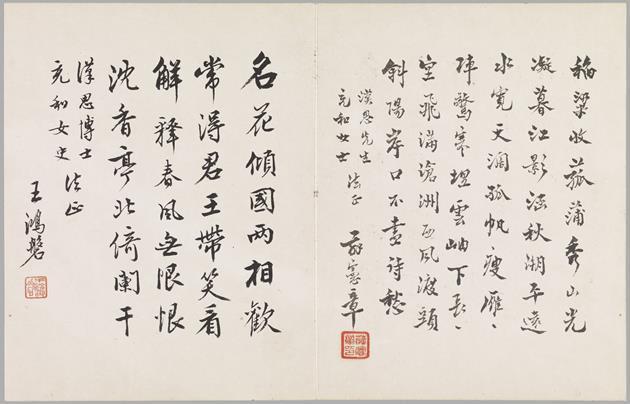 稻粱收菰蒲秀山光
凝暮江影涵秋潮平遠
水寬天濶孤帆瘦雁〻
陣驚寒埋雲岫下長〻
空飛滿滄洲西風渡頭
斜陽岸口不盡詩愁
漢思先生
充和女士 法正
憲章
名花傾國兩相歡
常得君王帶笑看
解釋春風无限恨
沈香亭北倚闌干
漢思博士
充和女史 法正
王鴻磐